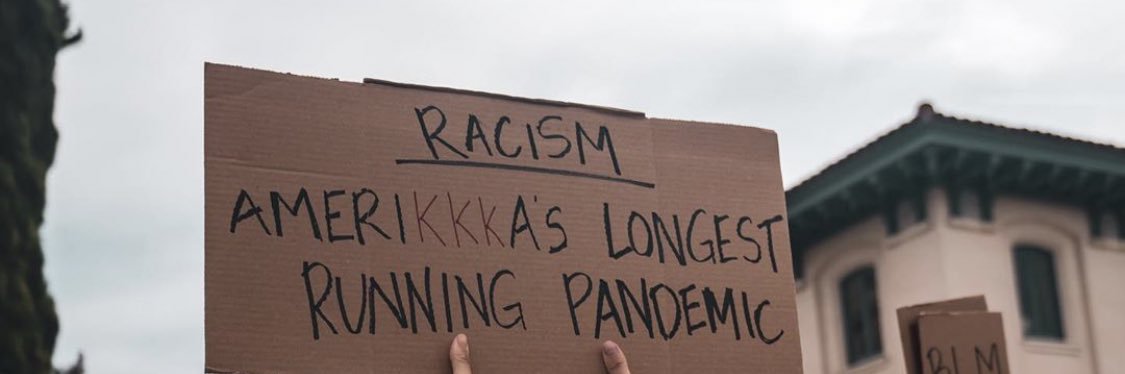 RACISM
AMERIKKKA'S LONGEST
RUNNING PANDEMIC
BLM